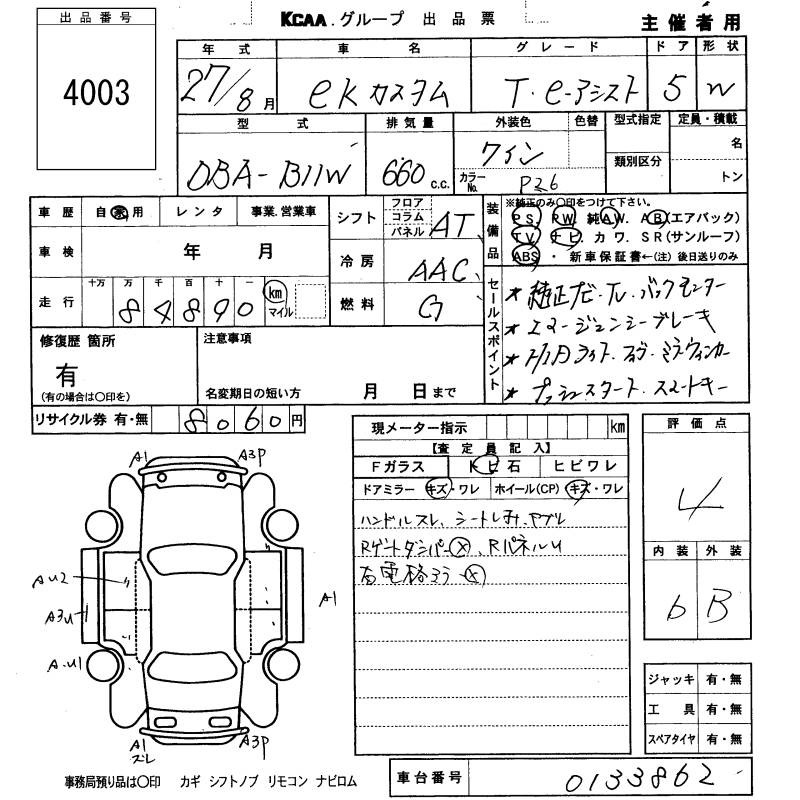 出品番号
4003
KCAA.グループ 出品票
主催者用
年式 車名 グレード ドア 形状
27/8月 eKカスタム T・e-アシスト 5 W
型式 排気量 外装色 色替 型式指定 定員・積載
DBA-B11W 660 c.c. ワイン カラーNo. P26 類別区分 名 トン
車歴 自家用 レンタ 事業.営業車
シフト フロア コラム パネル AT
装備品
※純正のみ○印をつけて下さい。
PS PW 純AW. AB(エアバック)
TV ナビ カワ. SR(サンルーフ)
ABS ・ 新車保証書←(注)後日送りのみ
車検 年 月
冷房 AAC
走行 十万 万 千 百 十 一 km マイル
84890
燃料 G
セールスポイント
★ 純正ナビ・TV・バックモニター
★ エマージェンシーブレーキ
★ HIDライト・フォグ・ミラーウィンカー
★ プッシュスタート・スマートキー
修復歴 箇所
有
(有の場合は○印を)
注意事項
名変期日の短い方 月 日まで
リサイクル券 有・無 8060円
現メーター指示 km
【査定員記入】
Fガラス トビ石 ヒビワレ
ドアミラー キズ・ワレ ホイール(CP) キズ・ワレ
ハンドルスレ、シート、ヤブレ
Rゲートダンパー×、RパネルU
右電格ミラー×
評価点
4
内装 外装
6 B
A1 A3P
AU2
A3U
A1
A.U1
A1 スレ A3P
ジャッキ 有・無
工具 有・無
スペアタイヤ 有・無
事務局預り品は○印 カギ シフトノブ リモコン ナビロム
車台番号 0133862